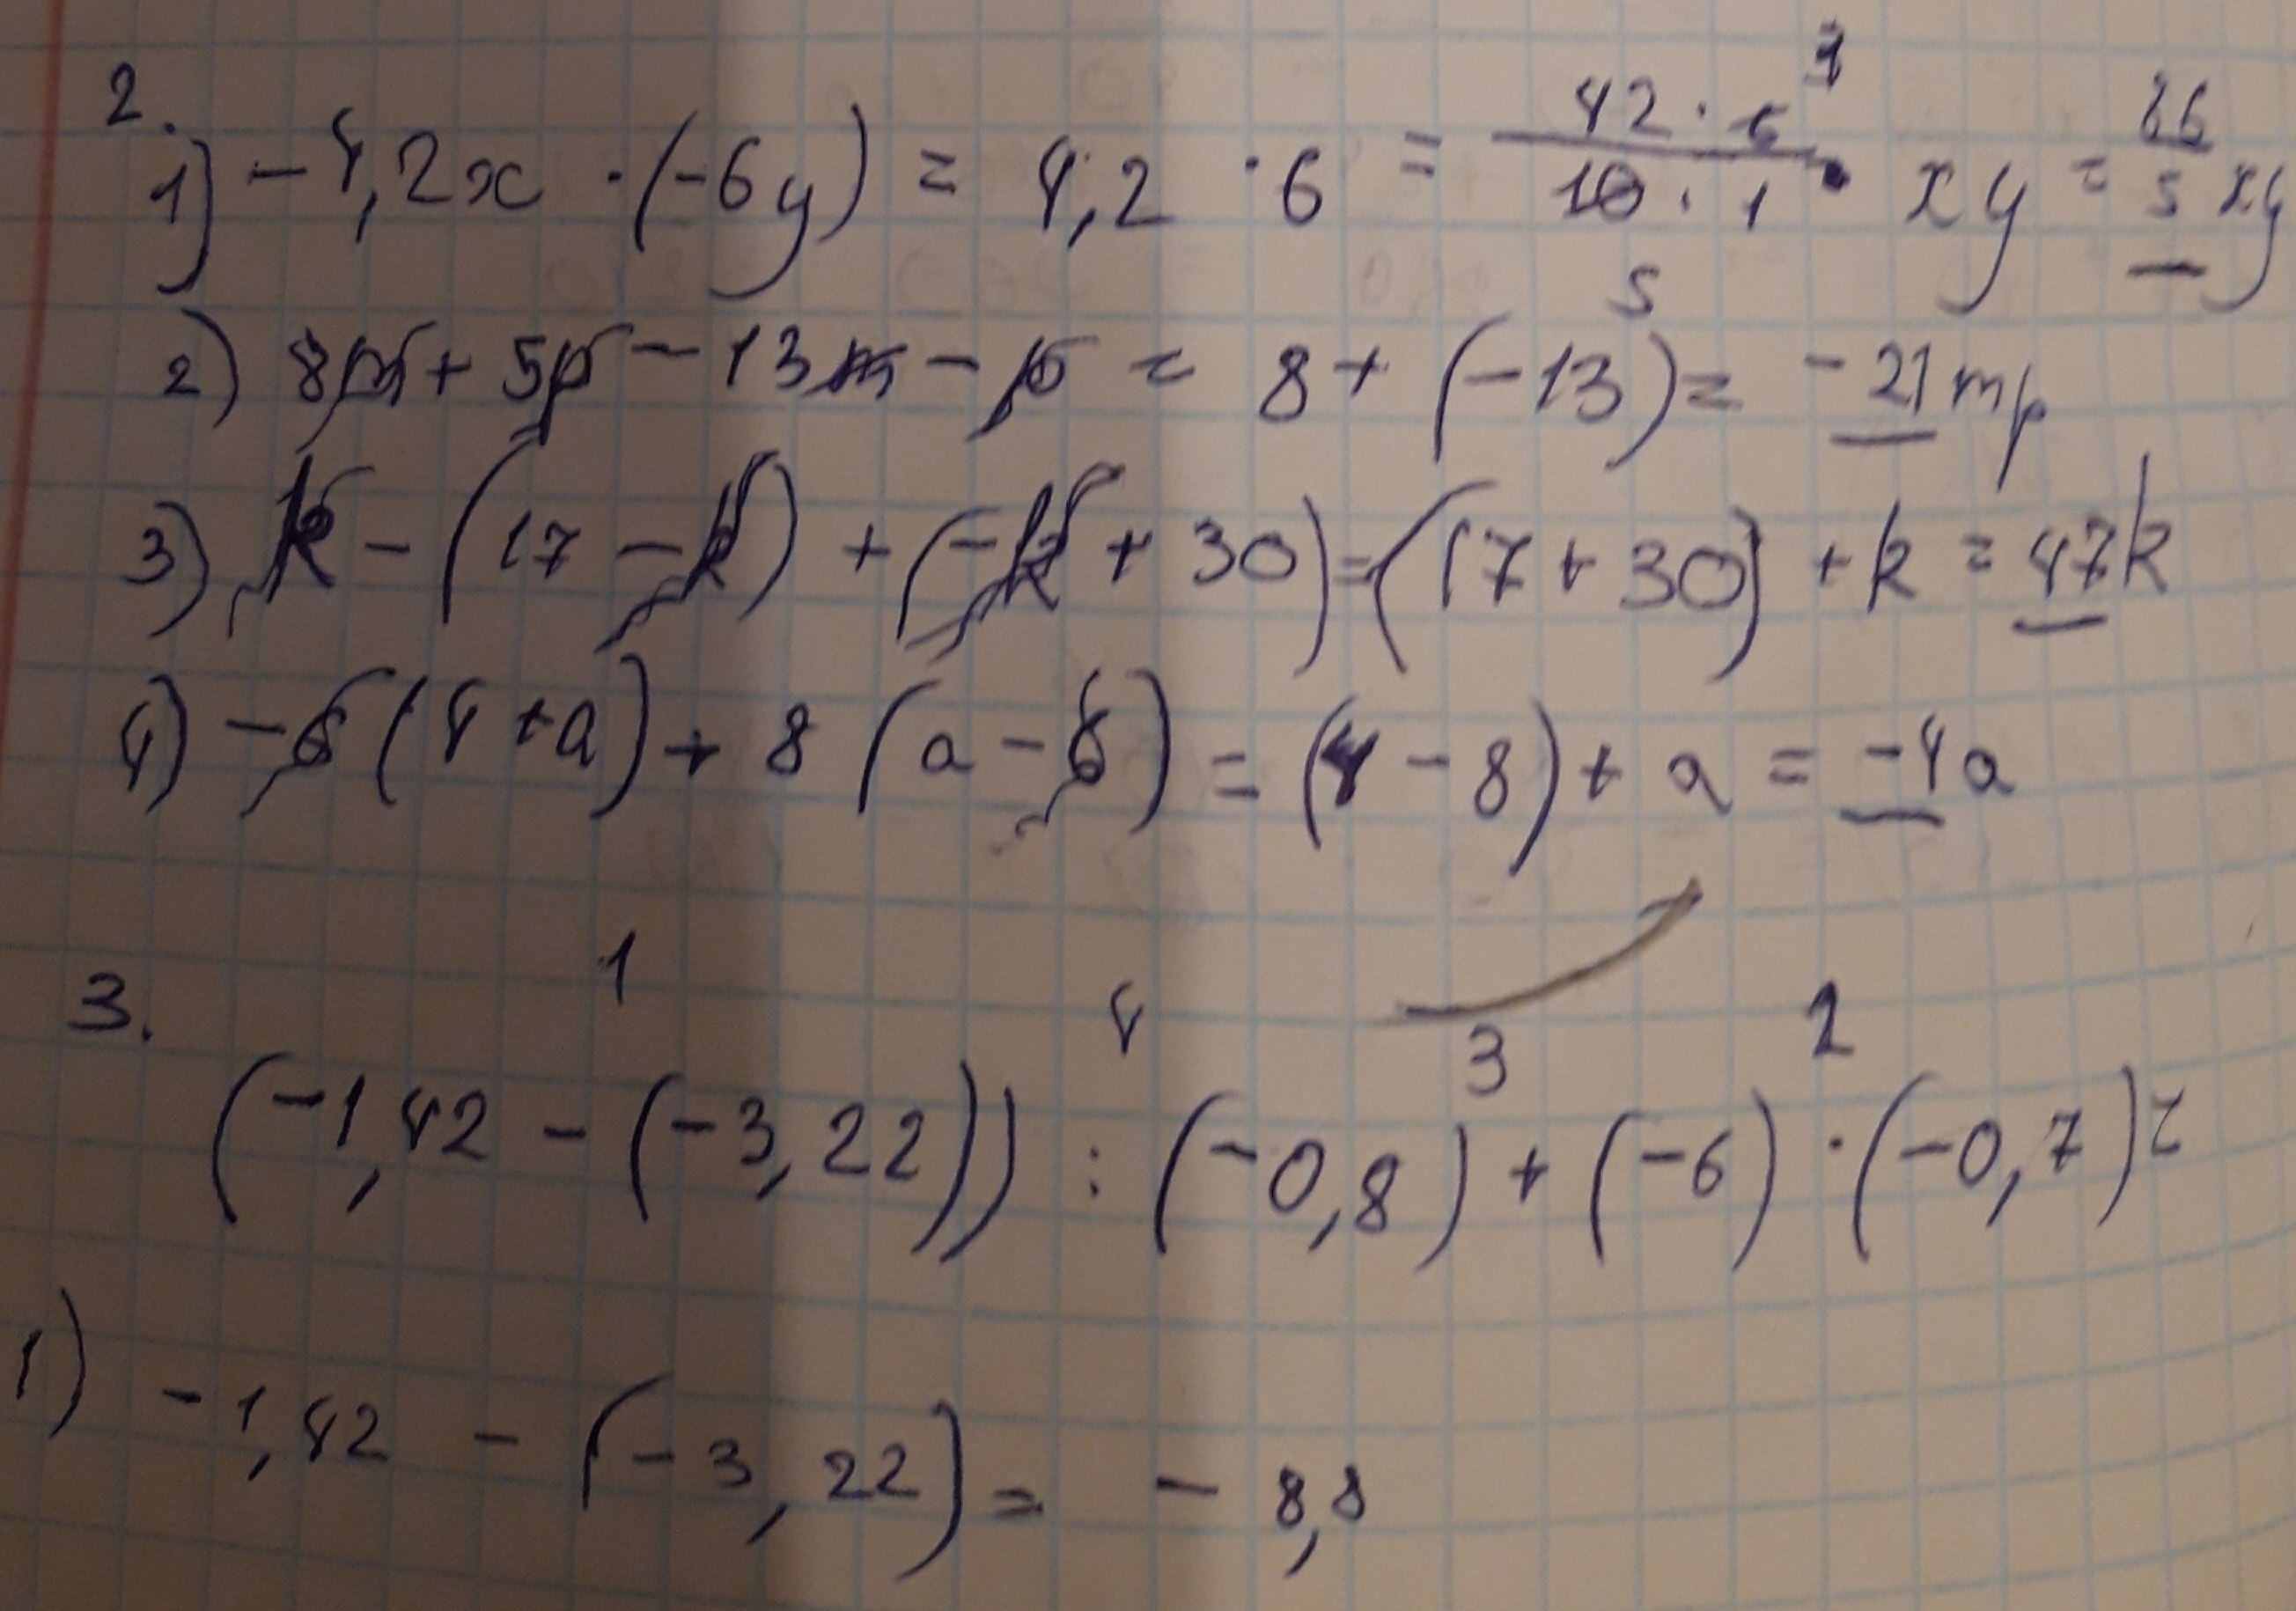 2.
1) -4,2x · (-6y) = 4,2 · 6 = 42 · 6 3 / 10 · 1 5 · xy = 26/5 xy
2) 8m + 5p - 13m - p = 8 + (-13) = -21mp
3) k - (17 - k) + (-k + 30) = (17 + 30) + k = 47k
4) -6(4 + a) + 8(a - 6) = (4 - 8) + a = -4a
1 4 3 2
3. (-1,42 - (-3,22)) : (-0,8) + (-6) · (-0,7) =
1) -1,42 - (-3,22) = - 8,8